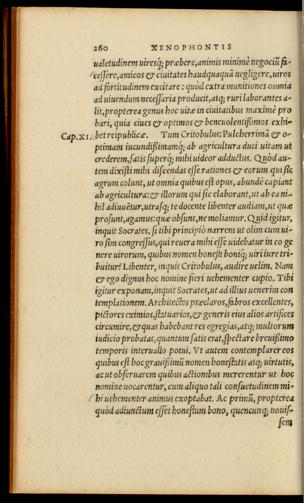 260 XENOPHONTIS
ualetudinem uiresq; præbere, animis minimè negociũ fa-
cessere, amicos & ciuitates haudquaquã negligere, uiros
ad fortitudinem excitare: quòd extra munitiones omnia
ad uiuendum necessaria producit, atq; ruri laborantes a-
lit, propterea genus hoc uitæ in ciuitatibus maximè pro
bari, quia ciues & optimos & beneuolentissimos exhi-
Cap. XI. bet reipublicæ. Tum Critobulus: Pulcherrimã & o-
ptimam iucundissimamq; ab agricultura duci uitam ut
crederem, satis superq; mihi uideor adductus. Quòd au-
tem dixisti mihi discendas esse rationes & eorum qui sic
agrum colunt, ut omnia quibus est opus, abundè capiant
ab agricultura: & illorum qui sic elaborant, ut ab ea ni-
hil adiuuẽtur, utrasq; te docente libenter audiam, ut quæ
prosunt, agamus: quæ obsunt, ne moliamur. Quid igitur,
inquit Socrates, si tibi principiò narrem ut olim cum ui-
ro sim congressus, qui reuera mihi esse uidebatur in eo ge
nere uirorum, quibus nomen honesti boniq; uiri iure tri-
buitur? Libenter, inquit Critobulus, audire uelim. Nam
& ego dignus hoc nomine fieri uehementer cupio. Tibi
igitur exponam, inquit Socrates, ut ad illius uenerim con
templationem. Architectos præclaros, fabros excellentes,
pictores eximios, statuarios, & generis eius alios artifices
circumire, & quas habebant res egregias, atq; multorum
iudicio probatas, quantum satis erat, spectare breuissimo
temporis interuallo potui. Vt autem contemplarer eos
quibus est hoc grauissimũ nomen honestatis atq; uirtutis,
ac ut obseruarem quibus actionibus mererentur ut hoc
nomine uocarentur, cum aliquo tali consuetudinem mi-
hi uehementer animus exoptabat. Ac primũ, propterea
quòd adiunctum esset honestum bono, quencunq; nouis-
sem